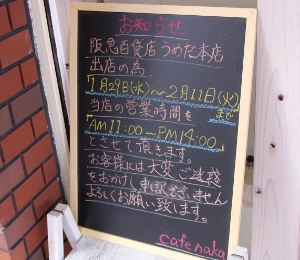 お知らせ
阪急百貨店うめだ本店
出店の為
1月29日(水)~2月11日(火)
まで
当店の営業時間を
「AM11:00~PM14:00」
とさせて頂きます。
お客様には大変ご迷惑
をおかけし申し訳ございません
よろしくお願い致します。
cafe naka